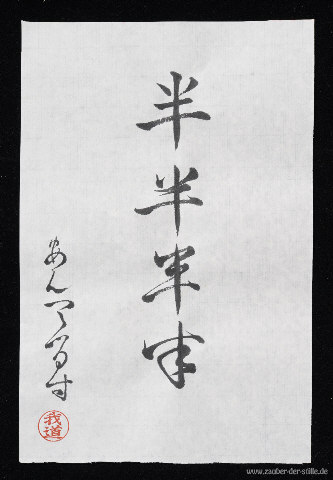 半半半半
あん
我道
www.zauber-der-stille.de